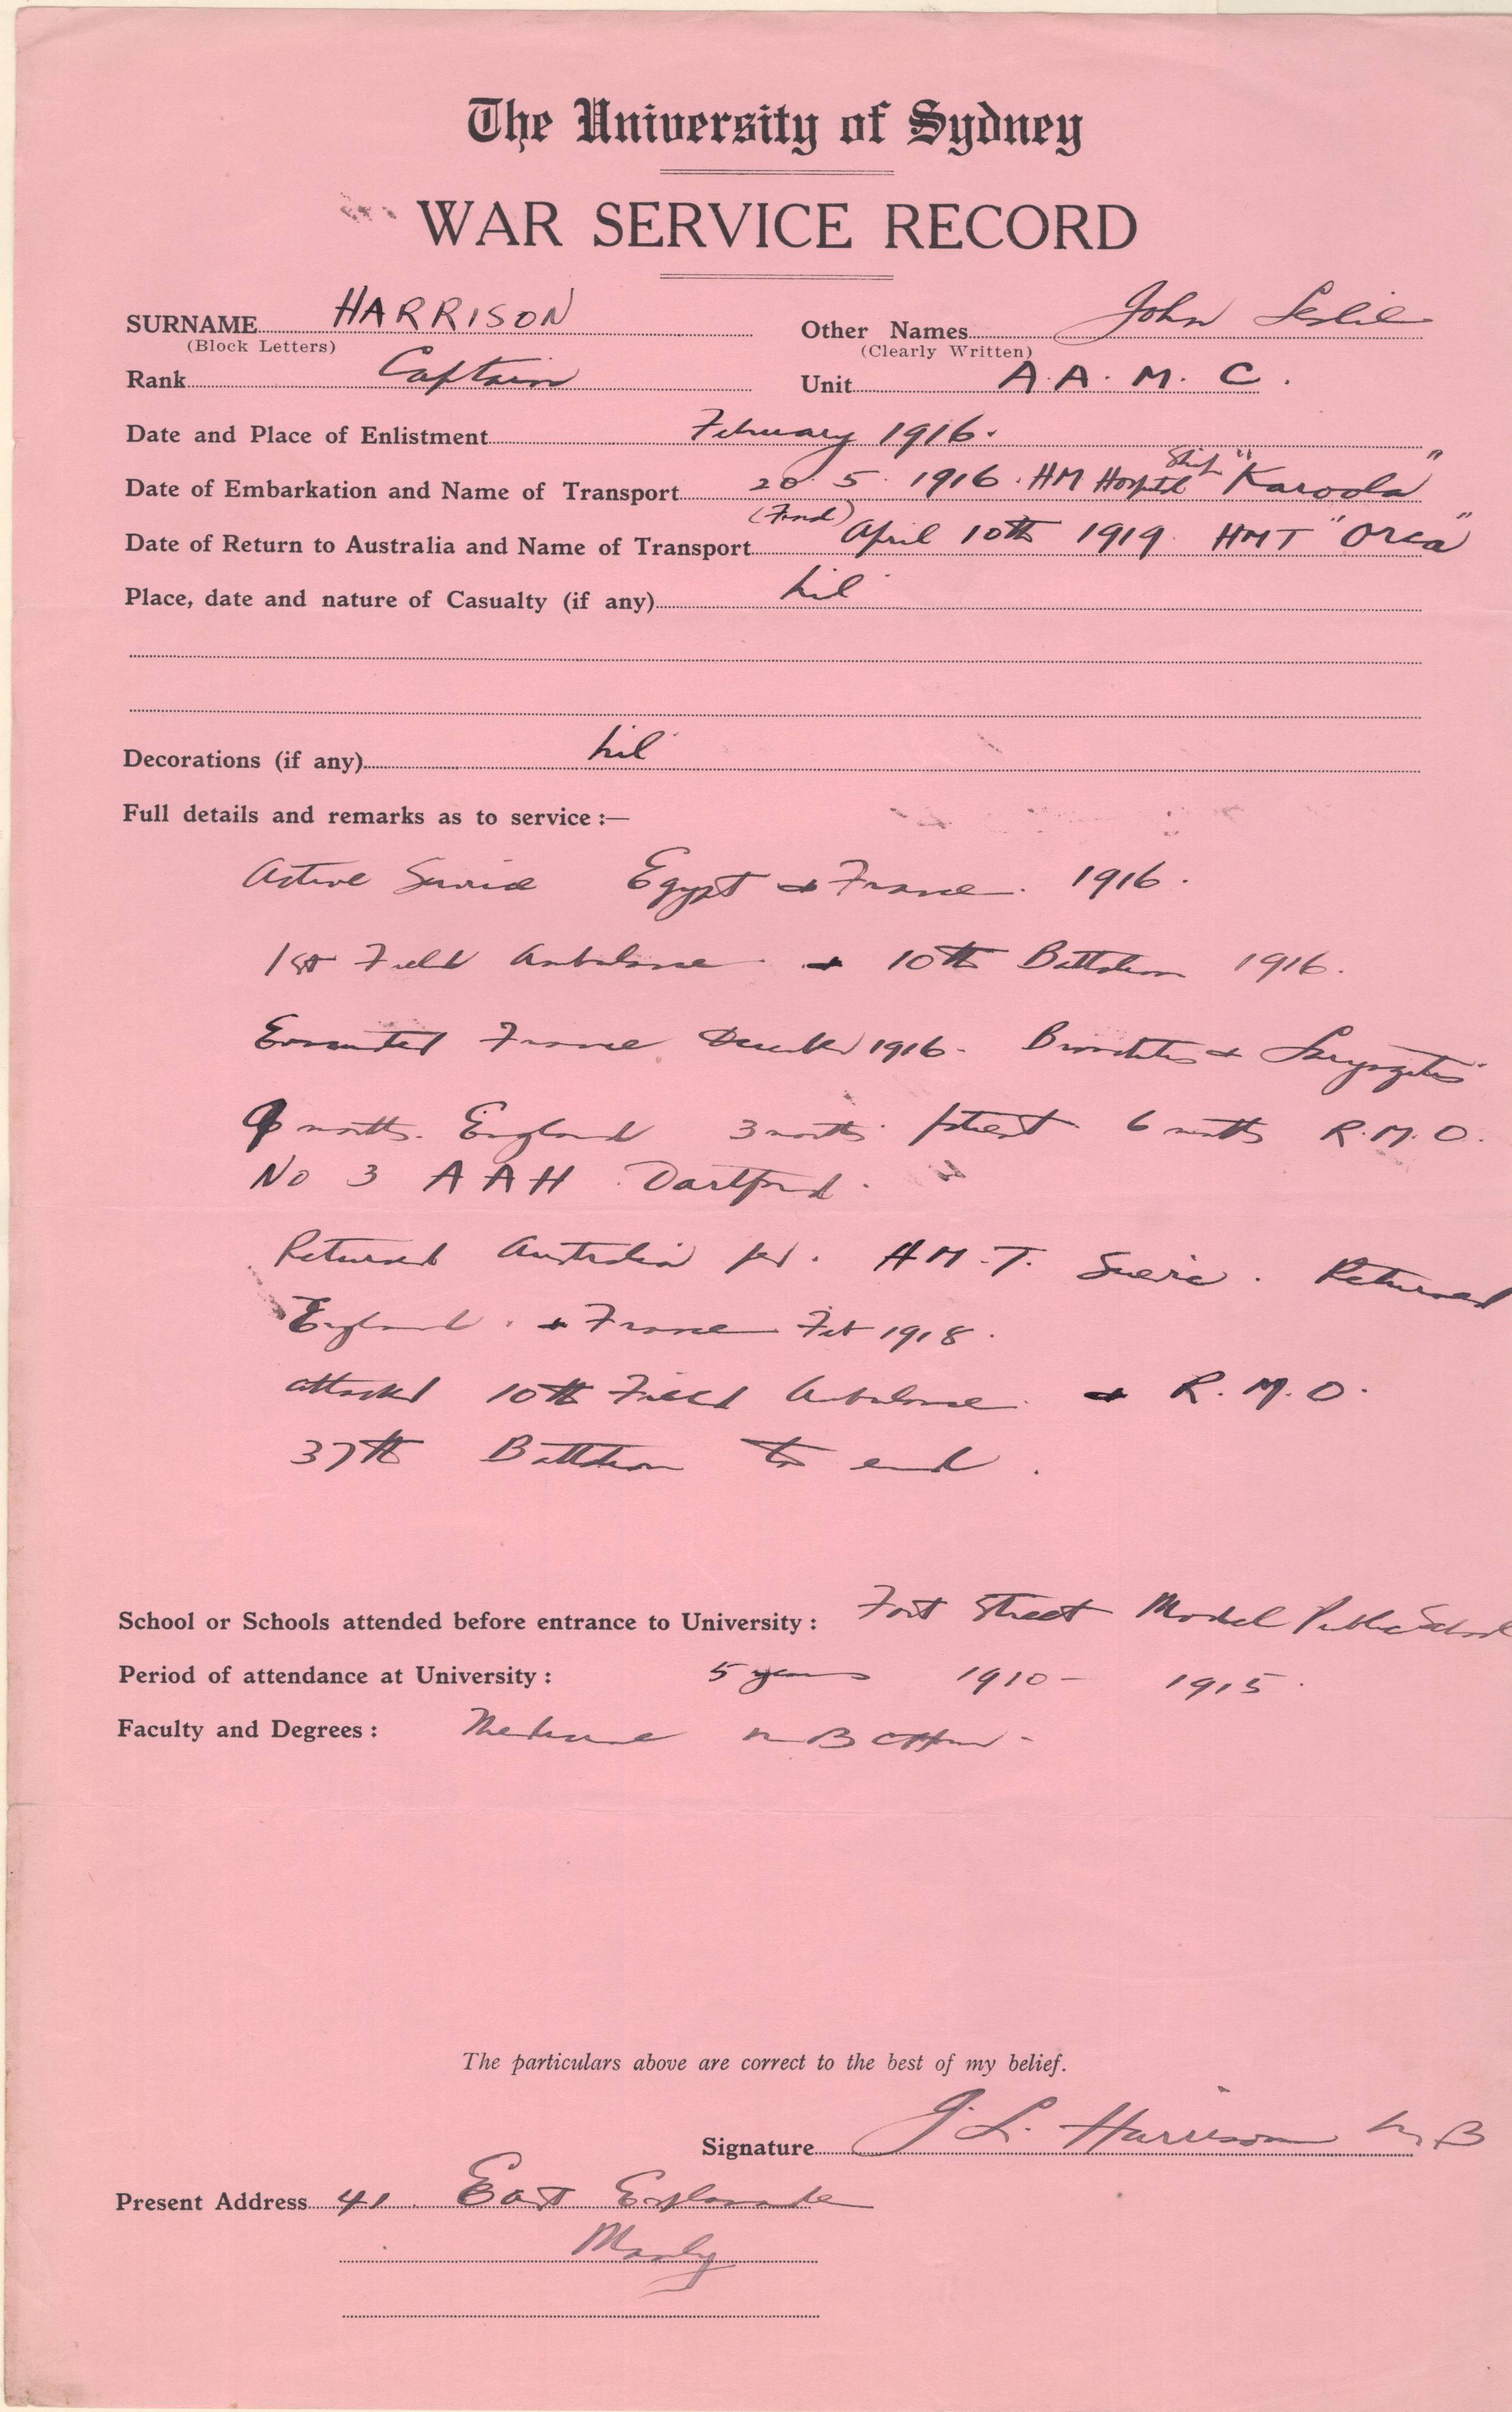 The University of Sydney
WAR SERVICE RECORD
SURNAME HARRISON Other Names John Leslie
(Block Letters) (Clearly Written)
Rank Captain Unit A.A.M.C.
Date and Place of Enlistment February 1916.
Date of Embarkation and Name of Transport 20.5.1916. HM Hospital Ship "Karoola"
Date of Return to Australia and Name of Transport (Final) April 10th 1919 HMT "Orca"
Place, date and nature of Casualty (if any) nil
Decorations (if any) nil
Full details and remarks as to service :—
Active Service Egypt & France. 1916.
1st Field Ambulance & 10th Battalion 1916.
Evacuated France December 1916. Bronchitis & Laryngitis
9 months. England 3 months patient 6 months R.M.O.
No 3 A A H Dartford.
Returned Australia per. H.M.T. Suevic. Returned
England. & France Feb 1918.
attached 10th Field Ambulance. & R.M.O.
37th Battalion to end.
School or Schools attended before entrance to University : Fort Street Model Public School
Period of attendance at University : 5 years 1910 - 1915.
Faculty and Degrees : Medicine M B ChM.
The particulars above are correct to the best of my belief.
Signature J. L. Harrison M B
Present Address 41 East Esplanade
Manly